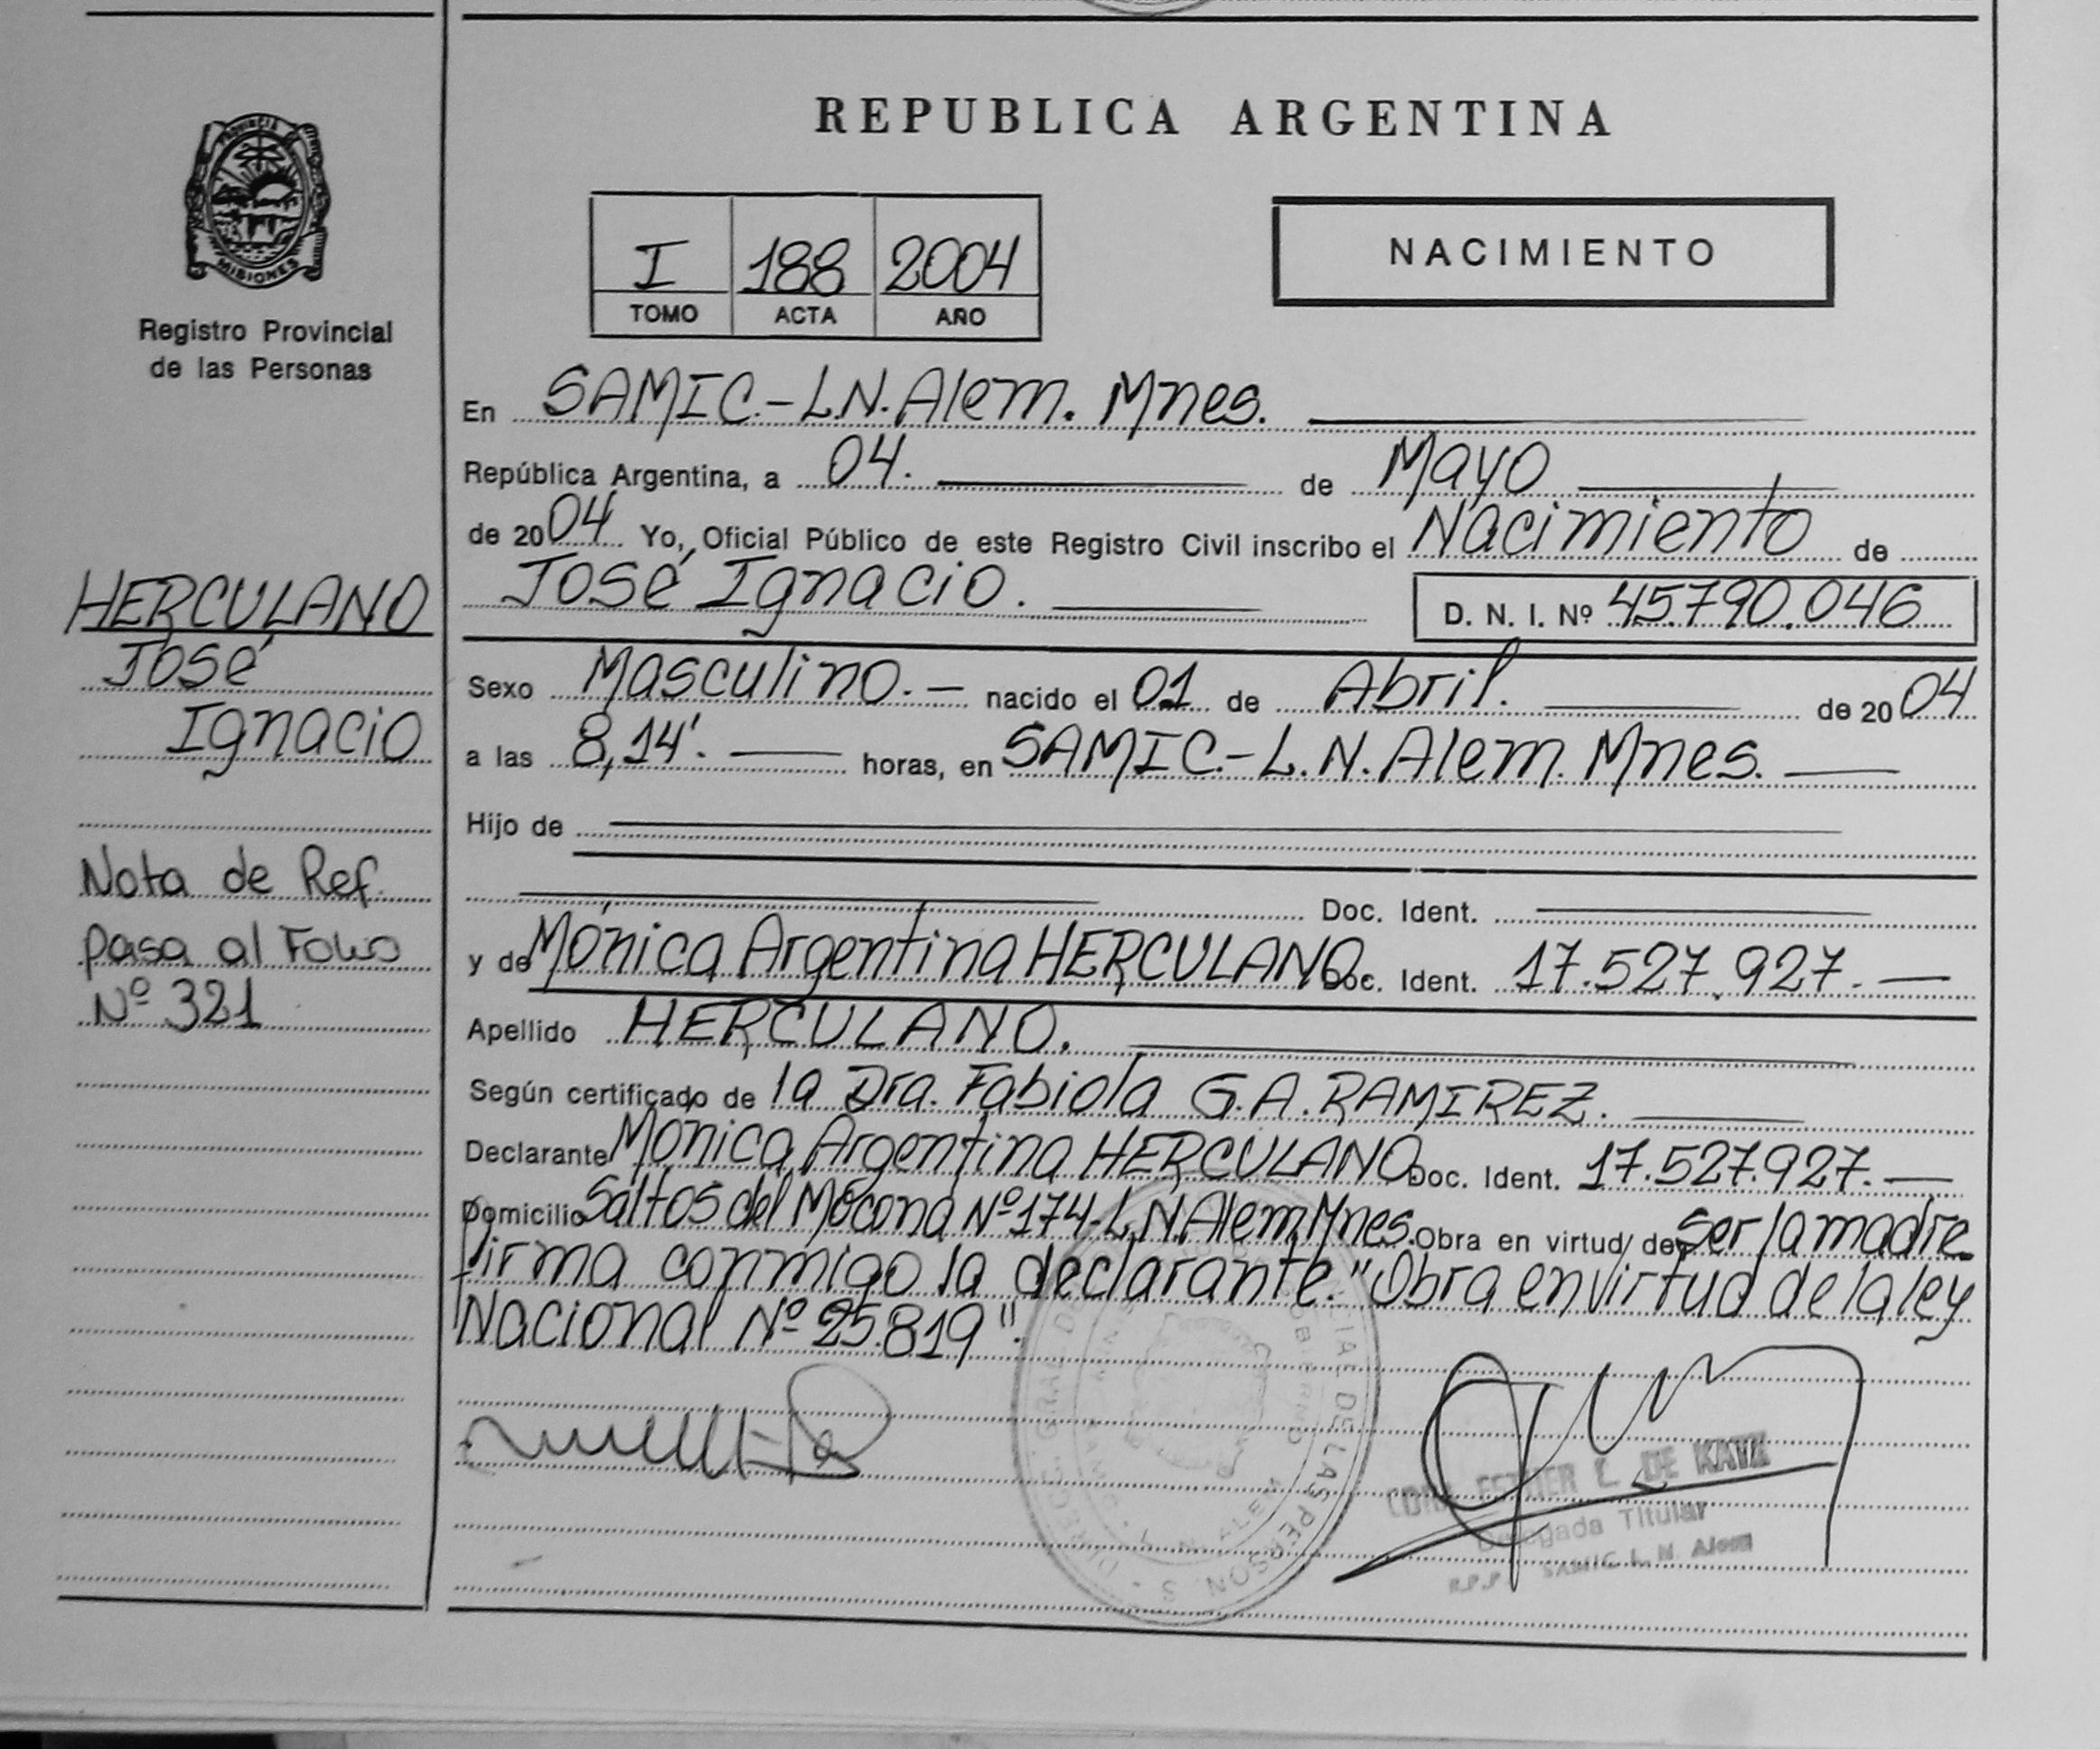 REPUBLICA ARGENTINA
PROVINCIA
MISIONES
Registro Provincial
de las Personas
I 188 2004
TOMO ACTA AÑO
NACIMIENTO
En SAMIC.-L.N.Alem. Mnes.
República Argentina, a 04. de Mayo
de 2004 Yo, Oficial Público de este Registro Civil inscribo el Nacimiento de
José Ignacio. D. N. I. Nº 45.790.046
HERCULANO
José
Ignacio
Sexo Masculino.- nacido el 01 de Abril. de 2004
a las 8,14'. horas, en SAMIC.-L.N.Alem. Mnes.
Hijo de
Doc. Ident.
y de Mónica Argentina HERCULANO Doc. Ident. 17.527.927.-
Nota de Ref.
pasa al Folio
Nº 321
Apellido HERCULANO.
Según certificado de la Dra. Fabiola G.A. RAMIREZ.
Declarante Mónica Argentina HERCULANO Doc. Ident. 17.527.927.-
Domicilio Saltos del Mocona Nº174-L.N.Alem Mnes. Obra en virtud de ser la madre
firma conmigo la declarante. "Obra en virtud de la ley
Nacional Nº 25.819".
ESTHER L. DE KATZ
Delegada Titular
R.P.P. SAMIC L. N. Alem